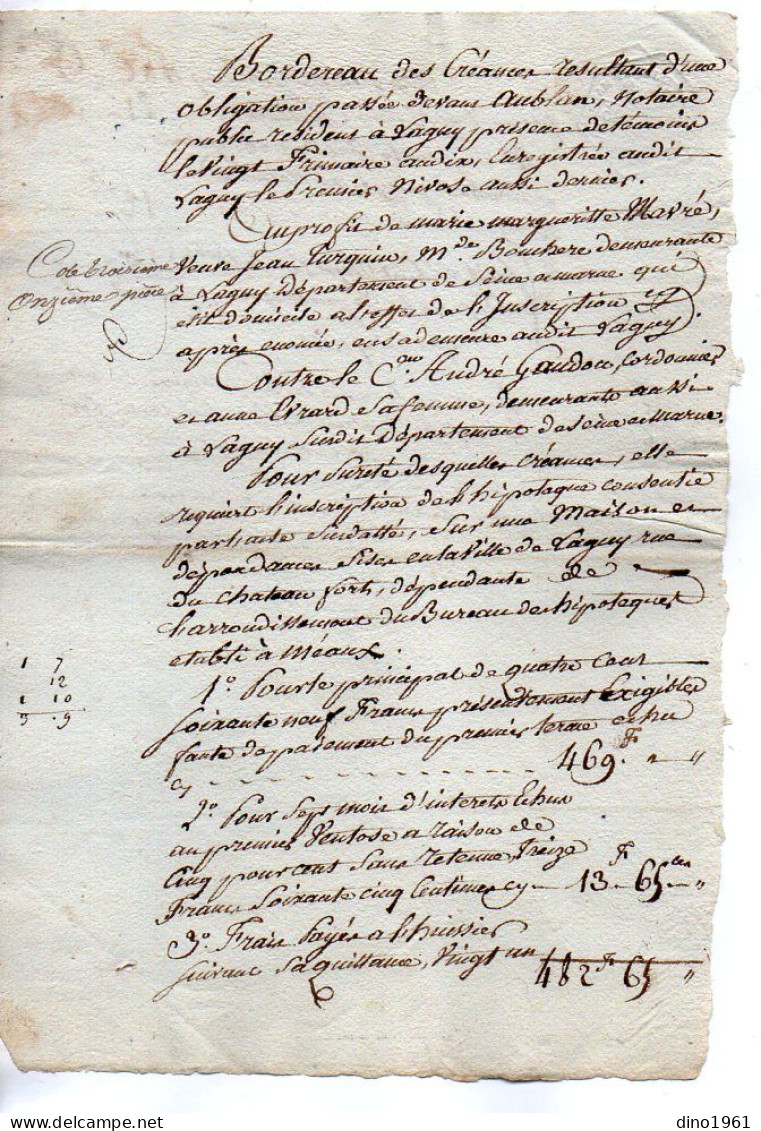 Bordereau des Créances resultant d'une
obligation passée devant Aublan, Notaire
public resident à Lagny présence de témoins
le Vingt Frimaire an dix, Enregistrée audit
Lagny le Premier Nivose aussi dernier.
Au profit de marie margueritte Havré,
Veuve Jean Turquin, M.de Bouchere demeurante
à Lagny Département de Seine a marne qui
elit domicile a l'effet de l'Inscription cy
après enoncée, en sa demeure audit Lagny.
Cote troisieme
Onzième piece
Contre le C.en André Gaudon, Cordonnier
et anne Evrard sa femme, demeurants aussi
à Lagny susdit Département de seine et marne.
Pour sureté desquelles Créances, elle
requiert l'inscription de l'hipoteque consentie
par l'acte susdatté, sur une Maison et
dépendances sises en la Ville de Lagny rue
du Chateau fort, dépendante de
l'arrondissement du Bureau des hipoteques
etabli à Méaux.
1 7
12
1 10
9 9
1.o Pour le principal de quatre cent
soixante neuf Francs présentement Exigibles
faute de paiement du premier terme echu
cy - - - - - - - - - - 469.F " "
2.o Pour sept mois d'interets Echus
au premier Ventose a raison de
Cinq pour cent sans retenue, Treize
Francs Soixante cinq Centimes cy — 13.F 65.ces "
3.o Frais Payés a l'huissier
suivant sa quittance, Vingt un
482F 65 "
dino1961